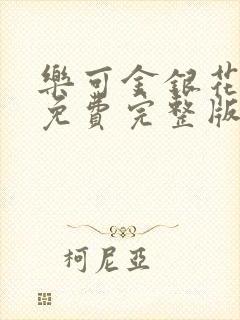 樂可金銀花
免費完整版
柯尼亞